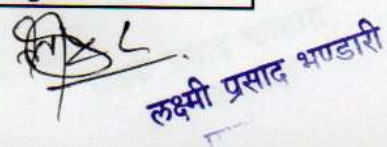 लक्ष्मी प्रसाद भण्डारी